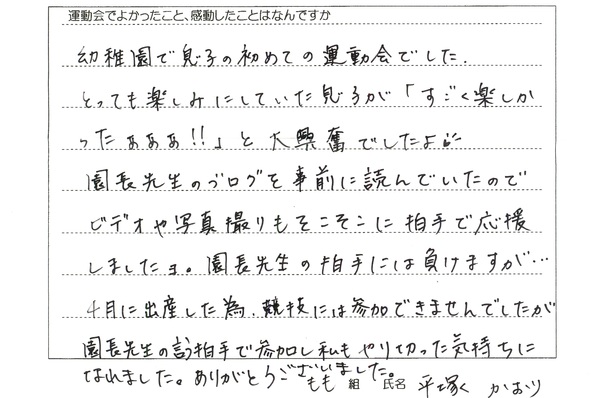 運動会でよかったこと、感動したことはなんですか
幼稚園で息子の初めての運動会でした.
とっても楽しみにしていた息子が「すごく楽しか
ったぁぁぁ!!」と大興奮でしたよ
園長先生のブログを事前に読んでいたので
ビデオや写真撮りもそこそこに拍手で応援
しましたョ。園長先生の拍手には負けますが…
4月に出産した為、競技には参加できませんでしたが
園長先生の拍手で参加し私もやり切った気持ちに
なれました。ありがとうございました。
もも 組 氏名 平塚 かおり